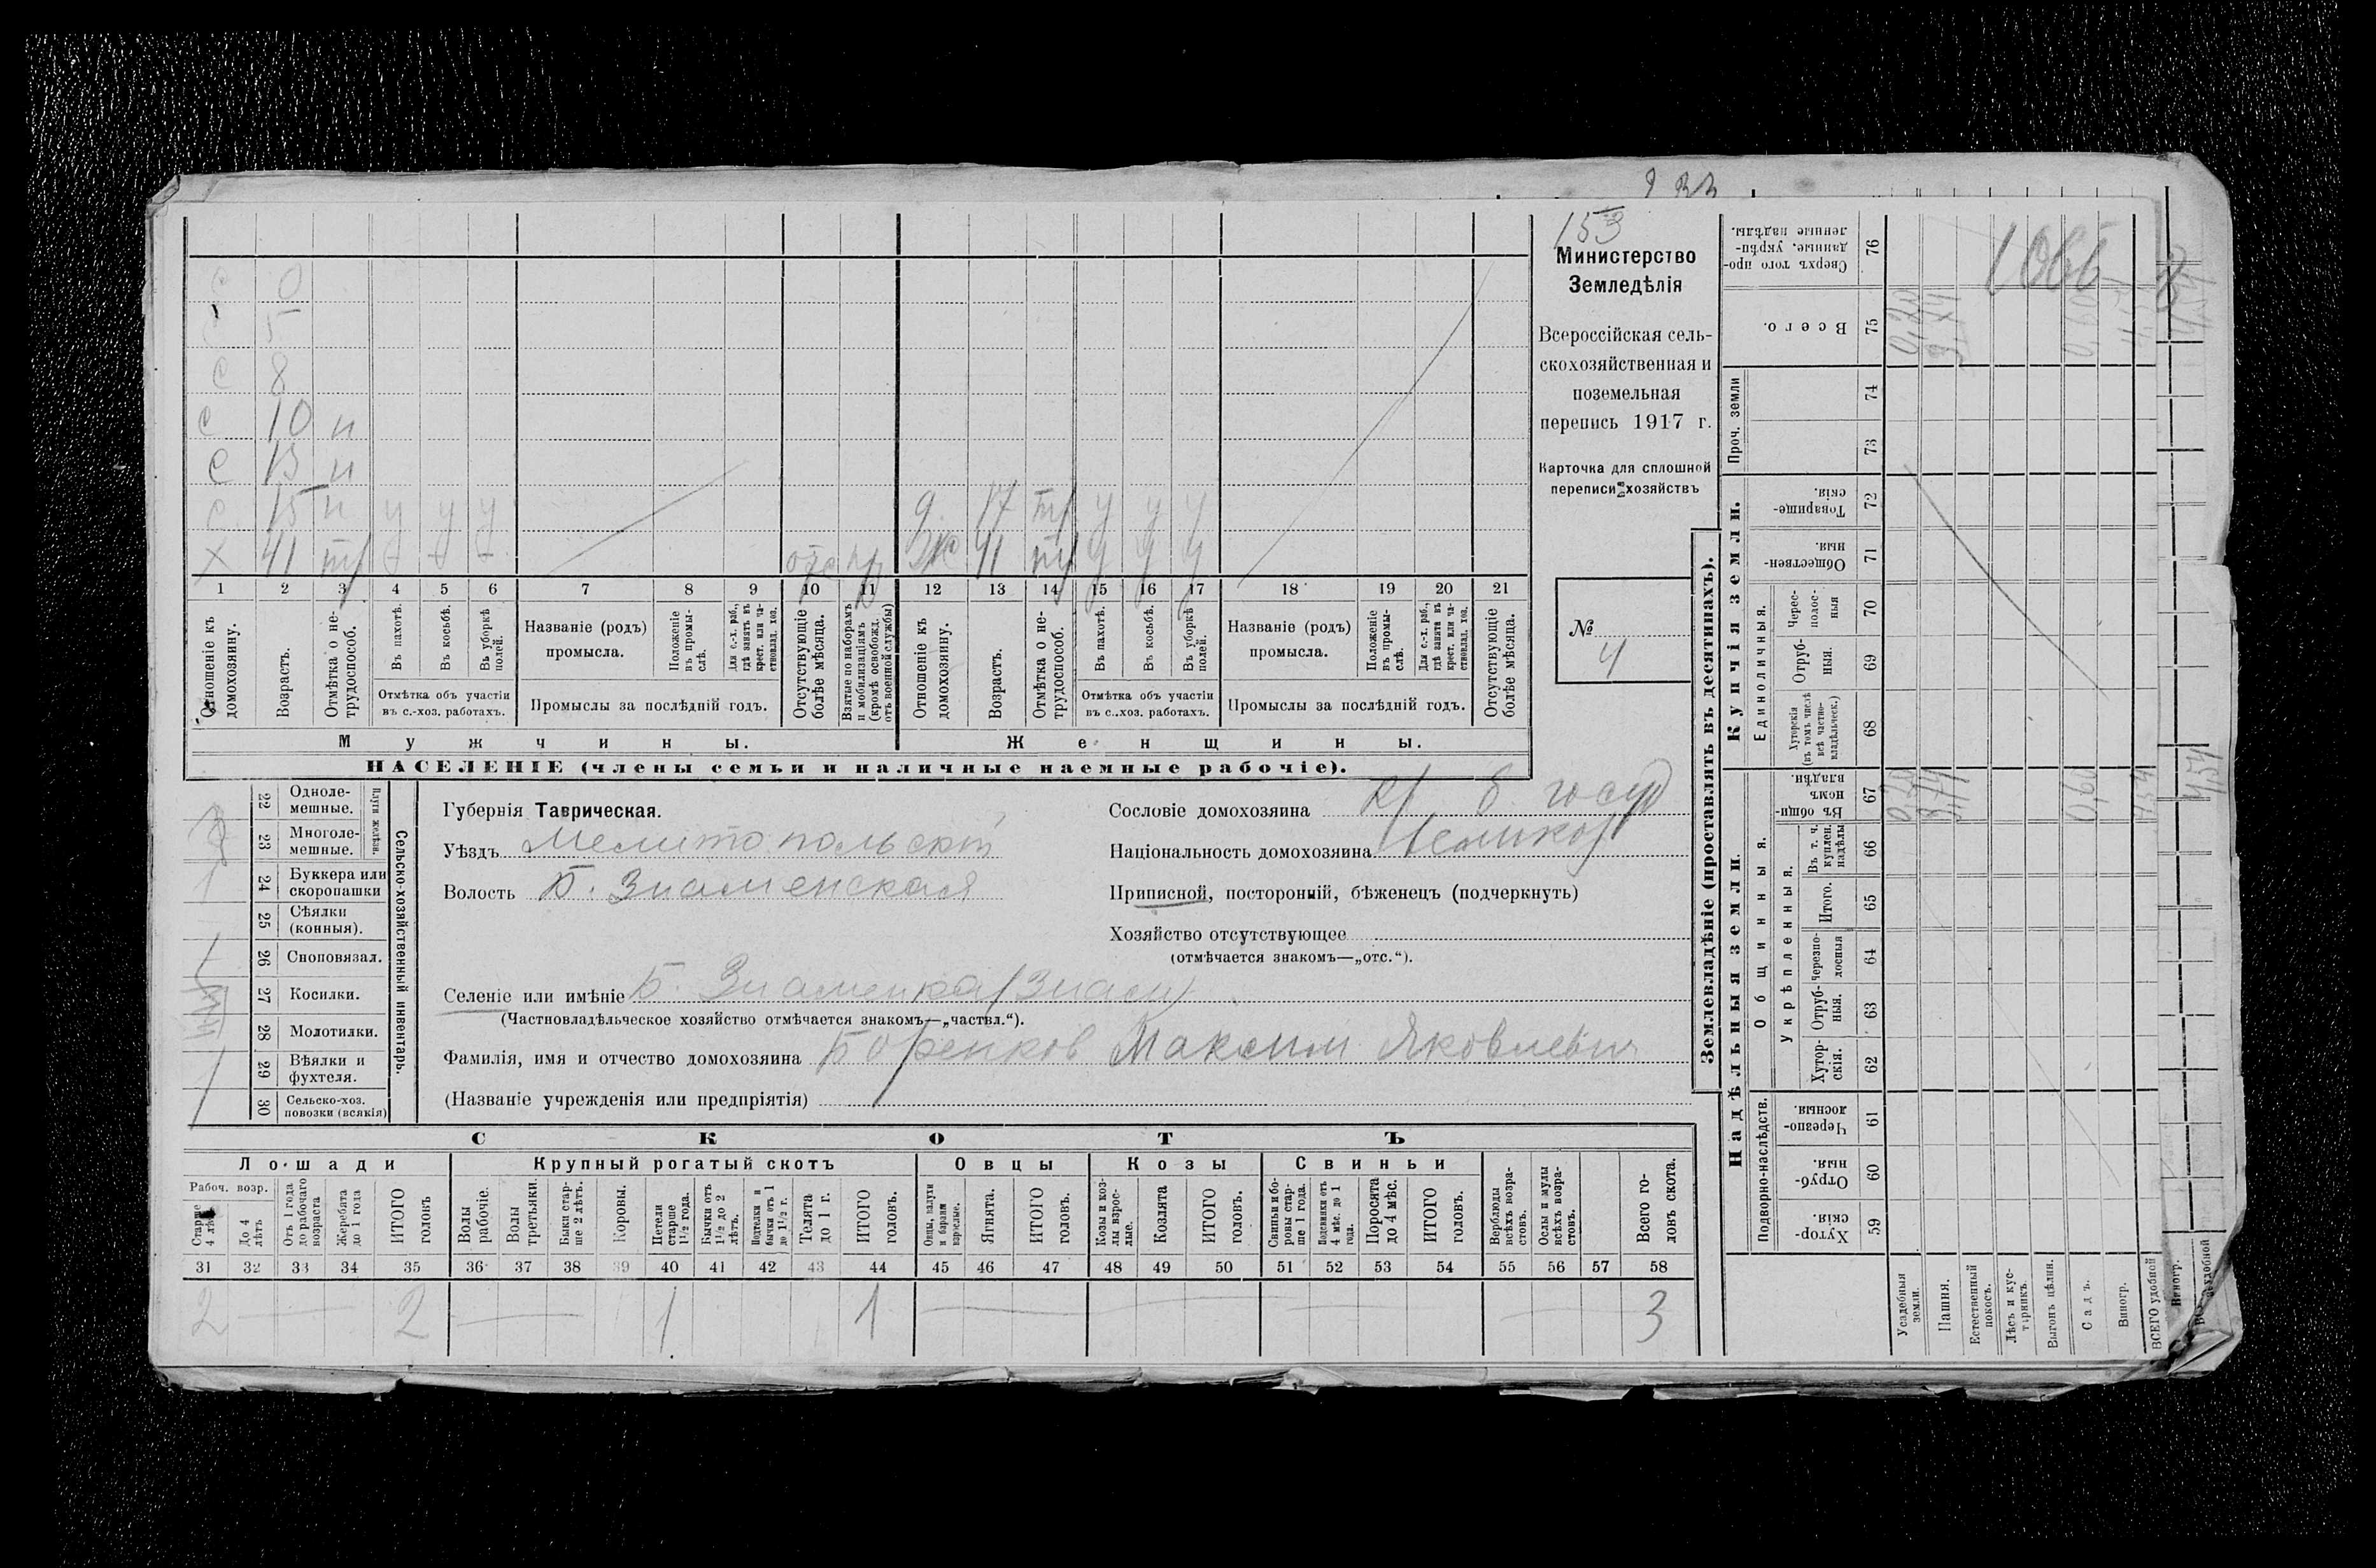 153
Министерство
Земледѣлія
Всероссійская сель-
скохозяйственная и
поземельная
перепись 1917 г.
Карточка для сплошной
переписи хозяйствъ
№
4
С 0
5
С 8
С 10 н
С 13 н
С 15 н у у у
д. 17 тр у у у
Х 41 тр
отс
жс 41 тр у у у
1 2 3 4 5 6 7 8 9 10 11 12 13 14 15 16 17 18 19 20 21
Отношеніе къ домохозяину.
Возрастъ.
Отмѣтка о не-трудоспособ.
Въ пахотѣ.
Въ косьбѣ.
Въ уборкѣ полей.
Отмѣтка объ участіи
въ с.-хоз. работахъ.
Названіе (родъ)
промысла.
Положеніе въ промы-слѣ.
Для с.-х. раб., гдѣ занятъ въ крест. или ча-стновлад. хоз.
Промыслы за послѣдній годъ.
Отсутствующіе болѣе мѣсяца.
Взятые по наборамъ и мобилизаціямъ (кромѣ освобожд. отъ военной службы)
Отношеніе къ домохозяину.
Возрастъ.
Отмѣтка о не-трудоспособ.
Въ пахотѣ.
Въ косьбѣ.
Въ уборкѣ полей.
Отмѣтка объ участіи
въ с..хоз. работахъ.
Названіе (родъ)
промысла.
Положеніе въ промы-слѣ.
Для с.-х. раб., гдѣ занята въ крест. или ча-стновлад. хоз.
Промыслы за послѣдній годъ.
Отсутствующіе болѣе мѣсяца.
Мужчины.
Женщины.
НАСЕЛЕНІЕ (члены семьи и наличные наемные рабочіе).
Сельско-хозяйственный инвентарь.
Плуги желѣзн.
22 Одноле-мешные.
23 Многоле-мешные.
24 Буккера или скоропашки
25 Сѣялки (конныя).
26 Сноповязал.
27 Косилки.
28 Молотилки.
29 Вѣялки и фухтеля.
30 Сельско-хоз. повозки (всякія)
Губернія Таврическая.
Уѣздъ Мелитопольскій
Волость Б. Знаменская
Сословіе домохозяина кр. б. госуд
Національность домохозяина Великор
Приписной, посторонній, бѣженецъ (подчеркнуть)
Хозяйство отсутствующее
(отмѣчается знакомъ—„отс.“).
Селеніе или имѣніе Б. Знаменка (Знам)
(Частновладѣльческое хозяйство отмѣчается знакомъ—„частвл.“).
Фамилія, имя и отчество домохозяина Боренков Максим Яковлевич
(Названіе учрежденія или предпріятія)
СКОТЪ
Лошади
Крупный рогатый скотъ
Овцы
Козы
Свиньи
Рабоч. возр.
Старше 4 лѣтъ
До 4 лѣтъ
Отъ 1 года до рабочаго возраста
Жеребята до 1 года
ИТОГО головъ
Волы рабочіе.
Волы третьяки.
Быки стар-ше 2 лѣтъ.
Коровы.
Нетели старше 1½ года.
Бычки отъ 1½ до 2 лѣтъ.
Подтелки и бычки отъ 1 до 1½ г.
Телята до 1 г.
ИТОГО головъ.
Овцы, валухи и бараны взрослые.
Ягнята.
ИТОГО головъ.
Козы и коз-лы взрос-лые.
Козлята
ИТОГО головъ.
Свиньи и бо-ровы стар-ше 1 года.
Подсвинки отъ 4 мѣс. до 1 года.
Поросята до 4 мѣс.
ИТОГО головъ.
Верблюды всѣхъ возра-стовъ.
Ослы и мулы всѣхъ возра-стовъ.
Всего го-ловъ скота.
31 32 33 34 35 36 37 38 39 40 41 42 43 44 45 46 47 48 49 50 51 52 53 54 55 56 57 58
2 2 1 1 3
Землевладѣніе (проставлять въ десятинахъ).
Надѣльныя земли.
Купчія земли.
Проч. земли
Подворно-наслѣдств.
Общинныя.
Укрѣпленныя.
Единоличныя.
Хутор-скія. 59
Отруб-ныя. 60
Черезпо-лосныя. 61
Хутор-скія. 62
Отруб-ныя. 63
Черезпо-лосныя 64
Итого. 65
Въ т. ч. куплен. надѣлы 66
Въ общи-номъ владѣн. 67
Хуторскія (въ томъ числѣ всѣ частно-владѣльческ.) 68
Отруб-ныя. 69
Черес-полос-ныя 70
Обществен-ныя. 71
Товарище-скія. 72
73
74
Всего. 75
Сверхъ того про-данные, укрѣп-ленные надѣлы. 76
Усадебныя земли.
Пашня.
Естественный покосъ.
Лѣсъ и кус-тарникъ.
Выгонъ цѣлин.
Садъ.
Виногр.
ВСЕГО удобной
1066